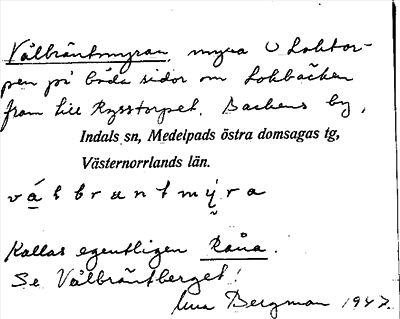 Vålbräntmyran, myra O Loktor-
pen på båda sidor om Lokbäcken
fram till Rysstorpet, Backens by,
Indals sn, Medelpads östra domsagas tg,
Västernorrlands län.
vá̱lbrantmýra
Kallas egentligen Råna.
Se Vålbräntberget!
Bergman 1947.